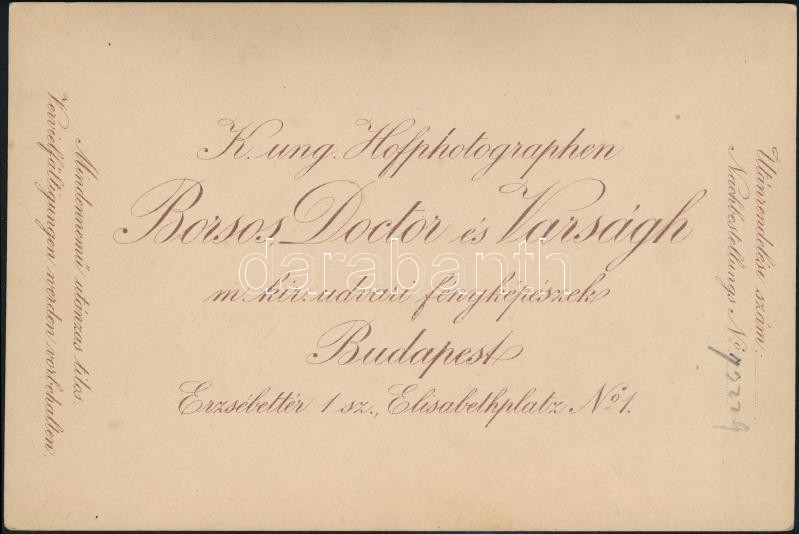 K. ung. Hofphotographen
Borsos, Doctor és Varságh
m. kir. udvari fényképészek
Budapest
Erzsébettér 1 sz., Elisabethplatz No 1.
Mindennemű utánzás tilos.
Vervielfältigungen werden vorbehalten.
Utánrendelési szám:
Nachbestellungs No
darabanth